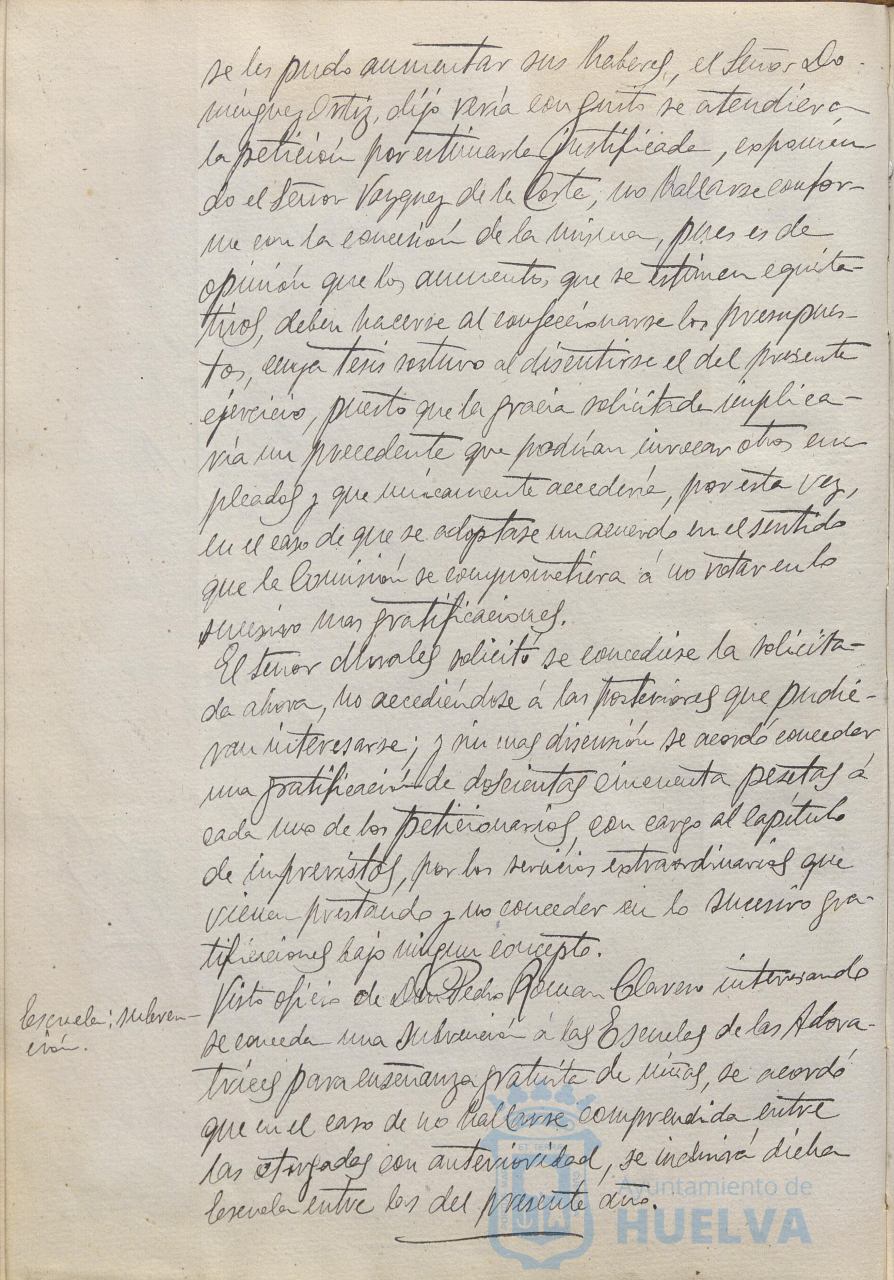 se les pudo aumentar sus haberes, el Señor Do-
minguez Ortiz, dijo vería con gusto se atendiera
la petición por estimarla justificada, exponien
do el Señor Vazquez de la Corte, no hallarse confor-
me con la concesión de la misma, pues es de
opinión que los aumentos que se estimen equita-
tivos, deben hacerse al confeccionarse los presupues-
tos, cuya tesis sostuvo al discutirse el del presente
ejercicio, puesto que la gracia solicitada implica-
ría un precedente que podrían invocar otros em
pleados y que unicamente accedería, por esta vez,
en el caso de que se adoptase un acuerdo en el sentido
que la Comisión se comprometiera á no votar en lo
sucesivo mas gratificaciones.
El señor Morales solicitó se concediese la solicita-
da ahora, no accediéndose á las posteriores que pudie-
ran interesarse; y sin mas discusión se acordó conceder
una gratificación de doscientas cincuenta pesetas á
cada uno de los peticionarios, con cargo al capítulo
de imprevistos, por los servicios extraordinarios que
vienen prestando y no conceder en lo sucesivo gra-
tificaciones bajo ningun concepto.
Escuela; subven-
ción.
Visto oficio de Don Pedro Roman Clavero interesando
se conceda una subvención á las Escuelas de las Adora-
trices para enseñanza gratuita de niñas, se acordó
que en el caso de no hallarse comprendida entre
las otorgadas con anterioridad, se incluirá dicha
Escuela entre las del presente año.
Ayuntamiento de
HUELVA